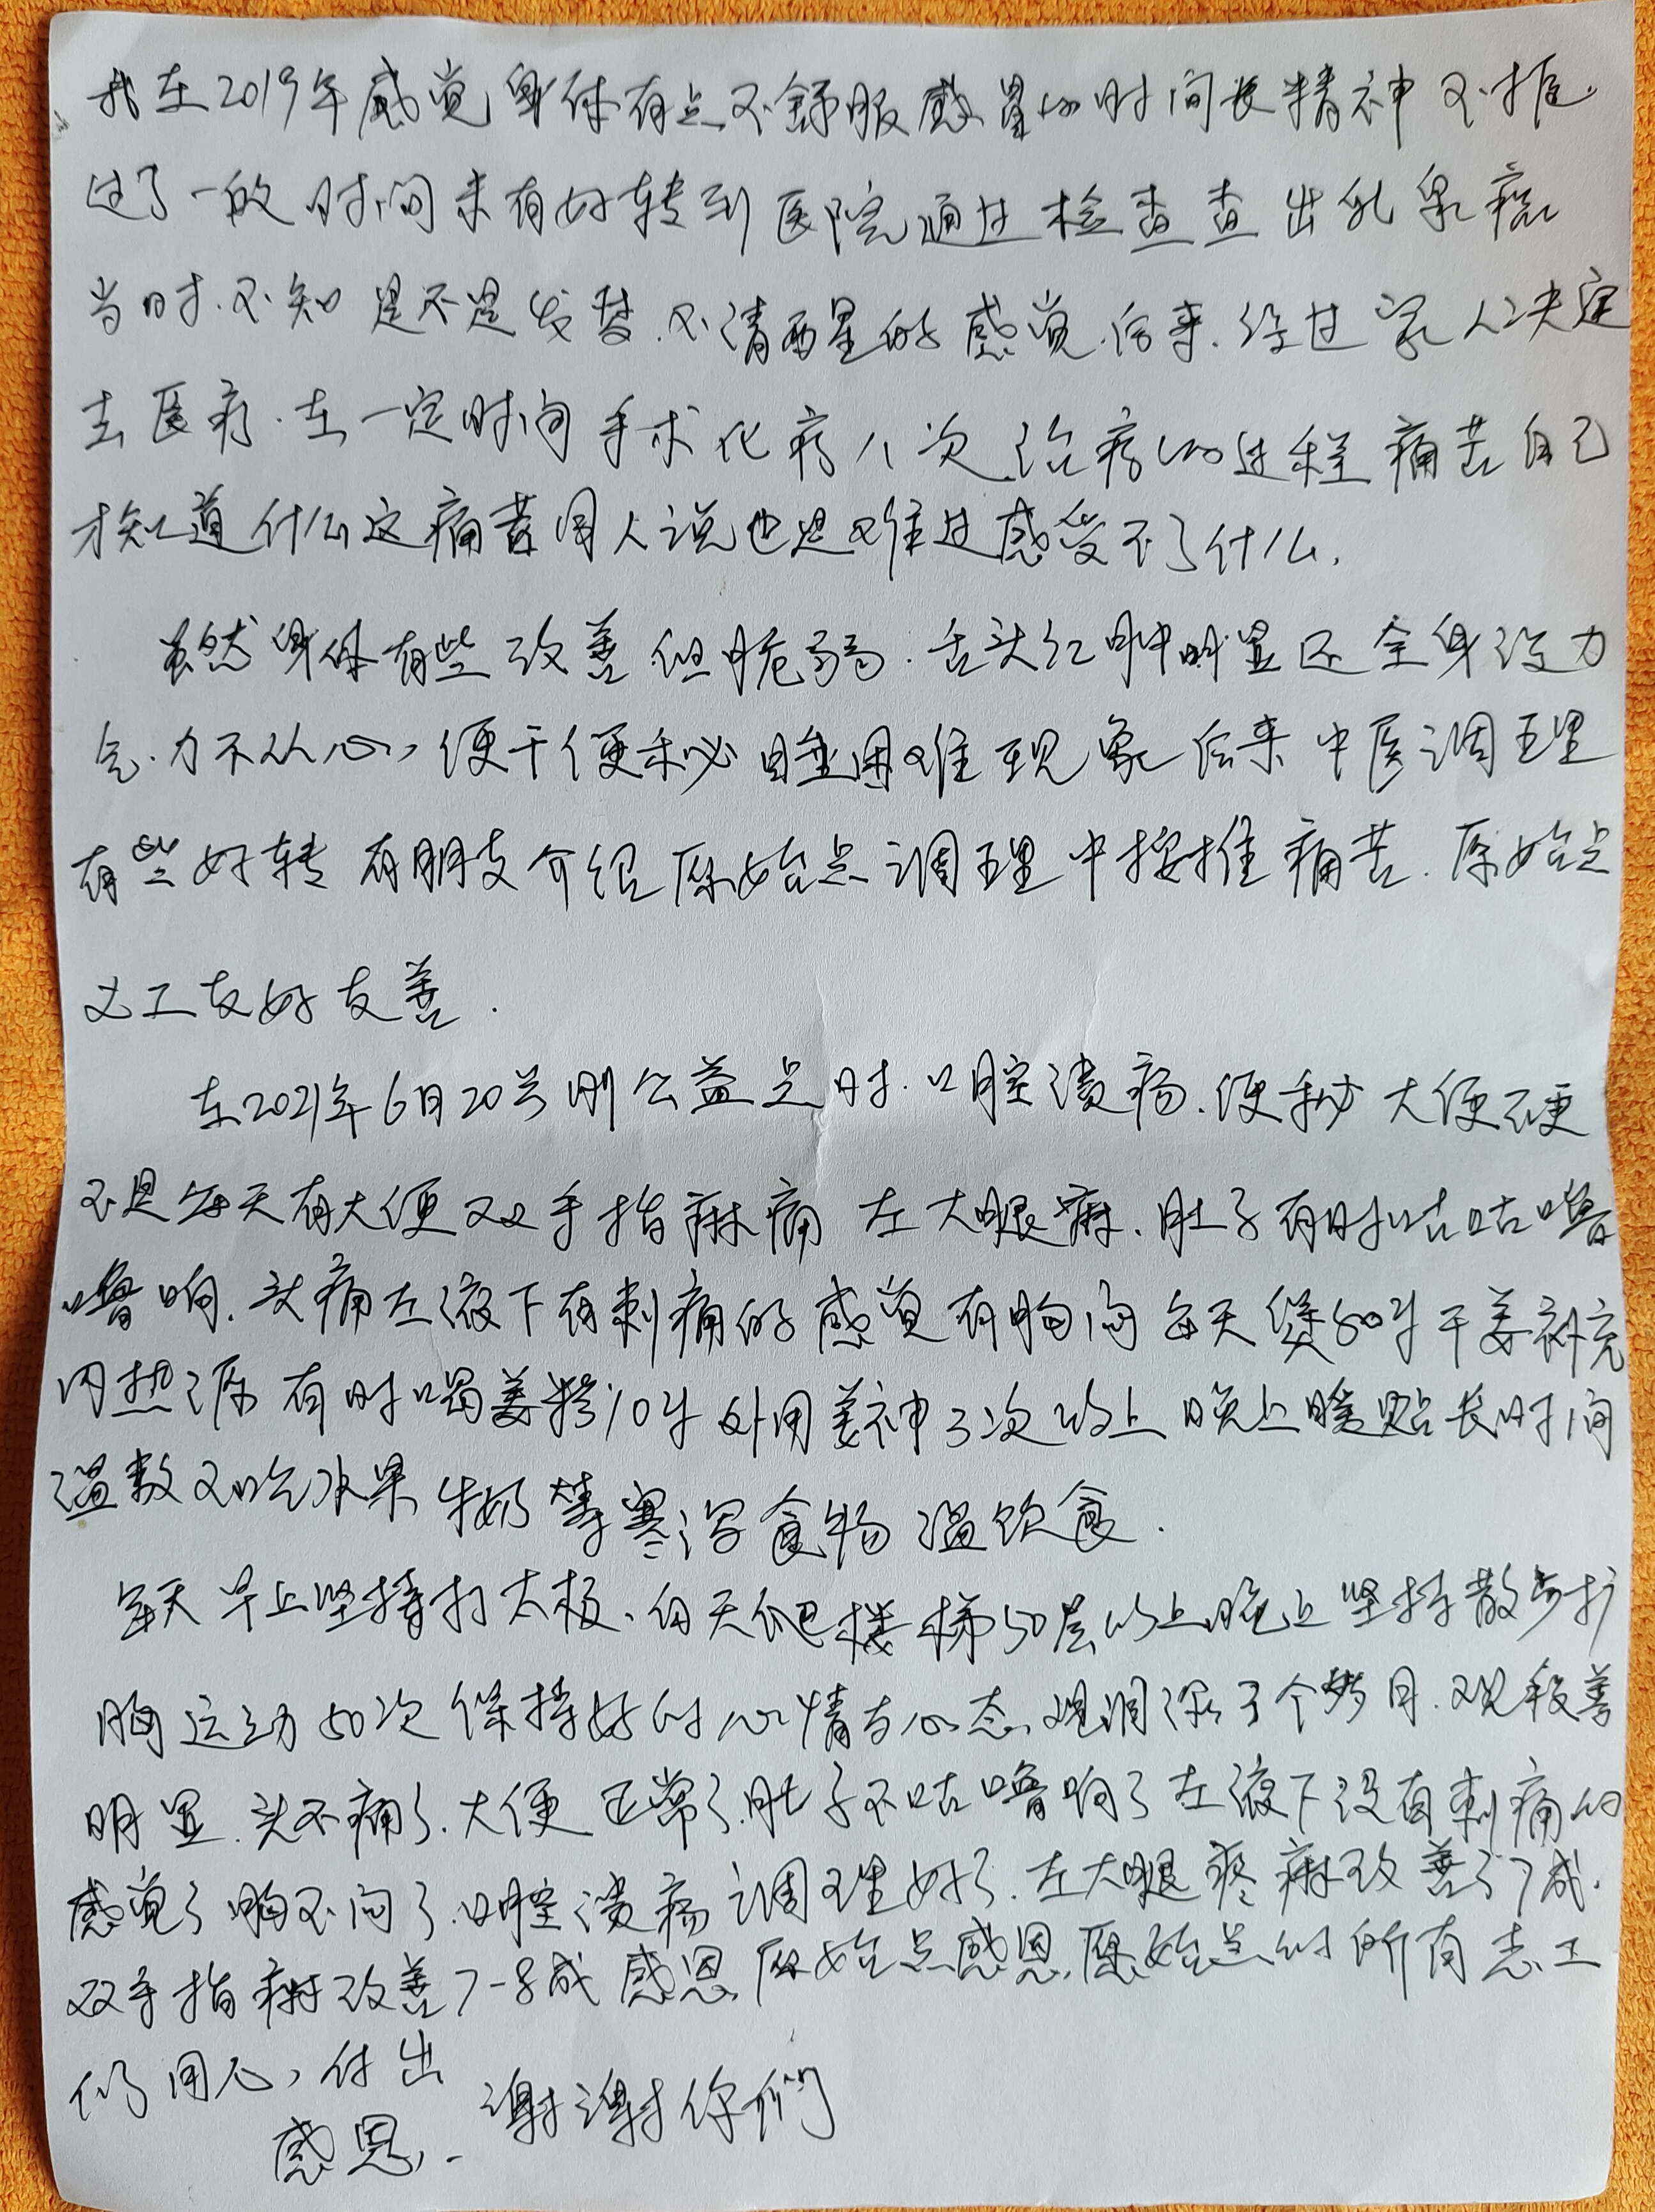 我在2019年感觉身体有点不舒服感冒的时间长精神不振.
过了一段时间未有好转到医院通过检查查出乳泉癌
当时.不知是不是发梦.不清西星的感觉.后来.经过家人决定
去医疗.在一定时间手术化疗八次.治疗的过程痛苦自己
才知道什么这痛苦同人说也是难过感受不了什么.
虽然身体有些改善但脆弱.舌头红肿明显还全身没力
气.力不从心,便干便秘睡困难现象后来中医调理
有些好转有朋友介绍原始点调理中按推痛苦.原始点
义工友好友善.
在2021年6月20号刚公益点时.口腔溃疡.便秘大便硬
不是每天有大便双手指麻痛左大腿麻.肚子有时咕咕噜
噜响.头痛左液下有刺痛的感觉有胸闷每天煲50克干姜补充
内热源有时喝姜粉10克外用姜神3次以上晚上暖贴长时间
温敷不吃水果牛奶等寒湿食物温饮食.
每天早上坚持打太极、白天爬楼梯50层以上晚上坚持散步扩
胸运动50次保持好的心情与心态.调理了个多月.改善
明显.头不痛了.大便正常了.肚子不咕噜响了左液下没有刺痛的
感觉了胸不闷了.口腔溃疡调理好了.左大腿疼麻改善了7成.
双手指麻改善7-8成感恩原始点感恩.原始点的所有志工
们用心,付出
感恩.. 谢谢你們